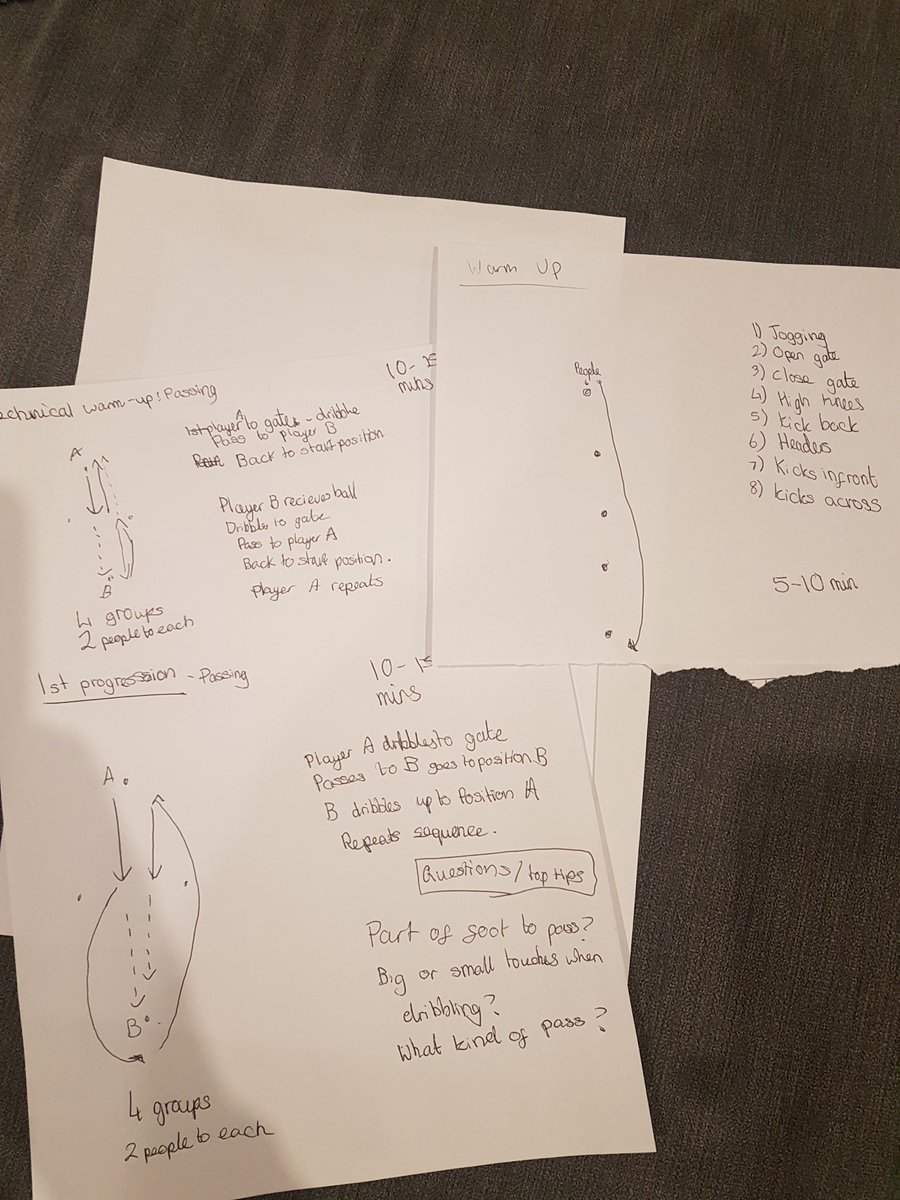 Warm Up
People
1) Jogging
2) Open gate
3) Close gate
4) High knees
5) Kick back
6) Headers
7) Kicks infront
8) Kicks across
5-10 min
echnical warm-up: Passing
10-15
mins
1st player A to gates - dribble
Pass to player B
Back to start position
A
B
Player B recieves ball
Dribbles to gate
Pass to player A
Back to start position.
Player A repeats
4 groups
2 people to each
1st progression - Passing
10-15
mins
Player A dribbles to gate
Passes to B goes to position B
B dribbles up to Position A
Repeats sequence.
A
B
Questions/top tips
Part of foot to pass?
Big or small touches when
dribbling?
What kind of pass?
4 groups
2 people to each